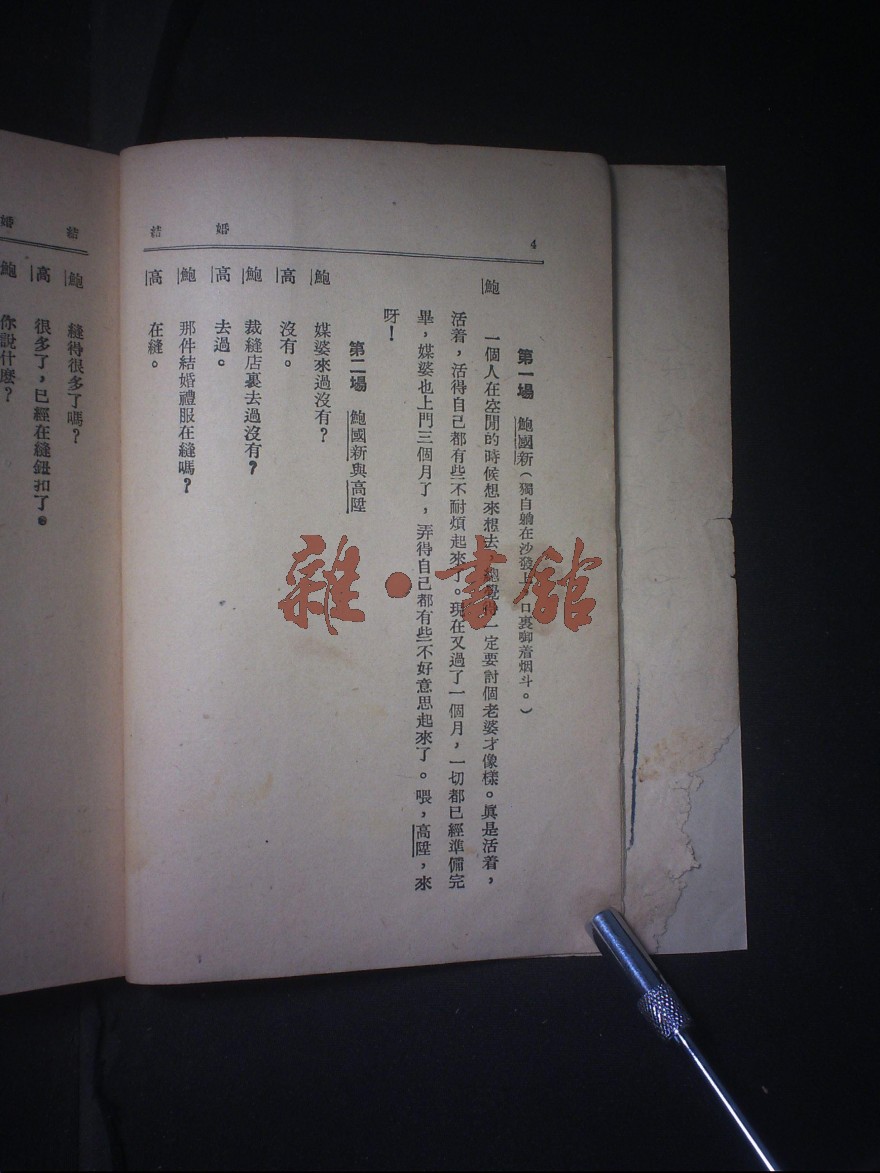 4
結婚
第一場 鮑國新（獨自躺在沙發上，口裏啣着烟斗。）
鮑 一個人在空閒的時候想來想去，總覺得一定要討個老婆才像樣。眞是活着，
活着，活得自己都有些不耐煩起來了。現在又過了一個月，一切都已經準備完
畢，媒婆也上門三個月了，弄得自己都有些不好意思起來了。喂，高陞，來
呀！
第二場 鮑國新與高陞
鮑 媒婆來過沒有？
高 沒有。
鮑 裁縫店裏去過沒有？
高 去過。
鮑 那件結婚禮服在縫嗎？
高 在縫。
結婚
鮑 縫得很多了嗎？
高 很多了，已經在縫鈕扣了。
鮑 你說什麽？
雜·書館